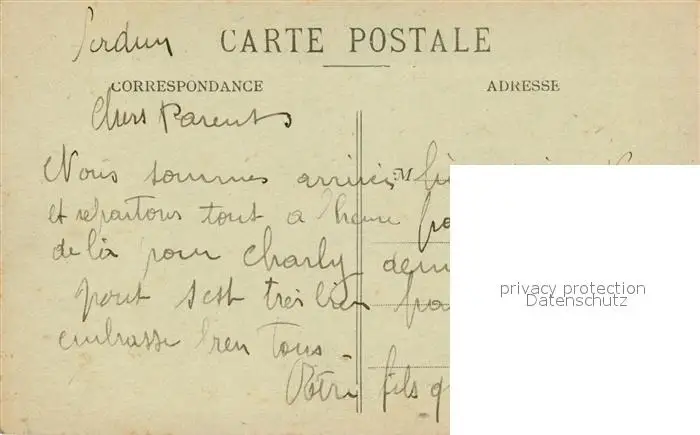 Verdun CARTE POSTALE
CORRESPONDANCE ADRESSE
Chers Parents
Nous sommes arrivés M
et repartons tout a l'heure
de là pour Charly
s'est très bien
embrasse bien tous
Votre fils
privacy protection
Datenschutz